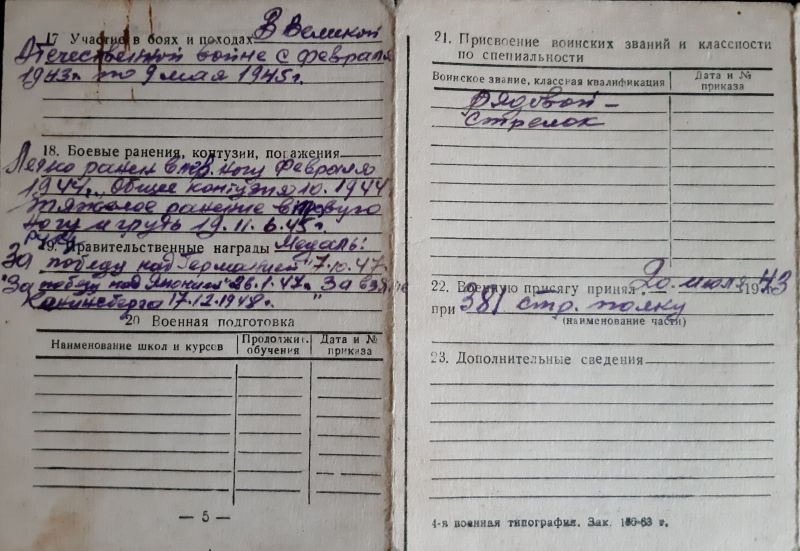 17 Участие в боях и походах В Великой
Отечественной войне с февраля
1943г. по 9 мая 1945г.
18. Боевые ранения, контузии, поражения
Легко ранен в ногу февраля
1944г. Общее контузия 10. 1944
тяжелое ранение в правую
ногу и грудь 19.
19. Правительственные награды Медаль:
За победу над Германией" 7.10.47.
"За победу над Японией" 26.1.47г. За взятие
Кенинсберга 17.12.1948г. "
20 Военная подготовка
Наименование школ и курсов
Продолжит. обучения
Дата и № приказа
— 5 —
21. Присвоение воинских званий и классности
по специальности
Воинское звание, классная квалификация
Дата и № приказа
Рядовой –
Стрелок
22. Военную присягу принял 20 июля 1943
при 381 стр. полку
(наименование части)
23. Дополнительные сведения
4-я военная типография. Зак. 83 г.